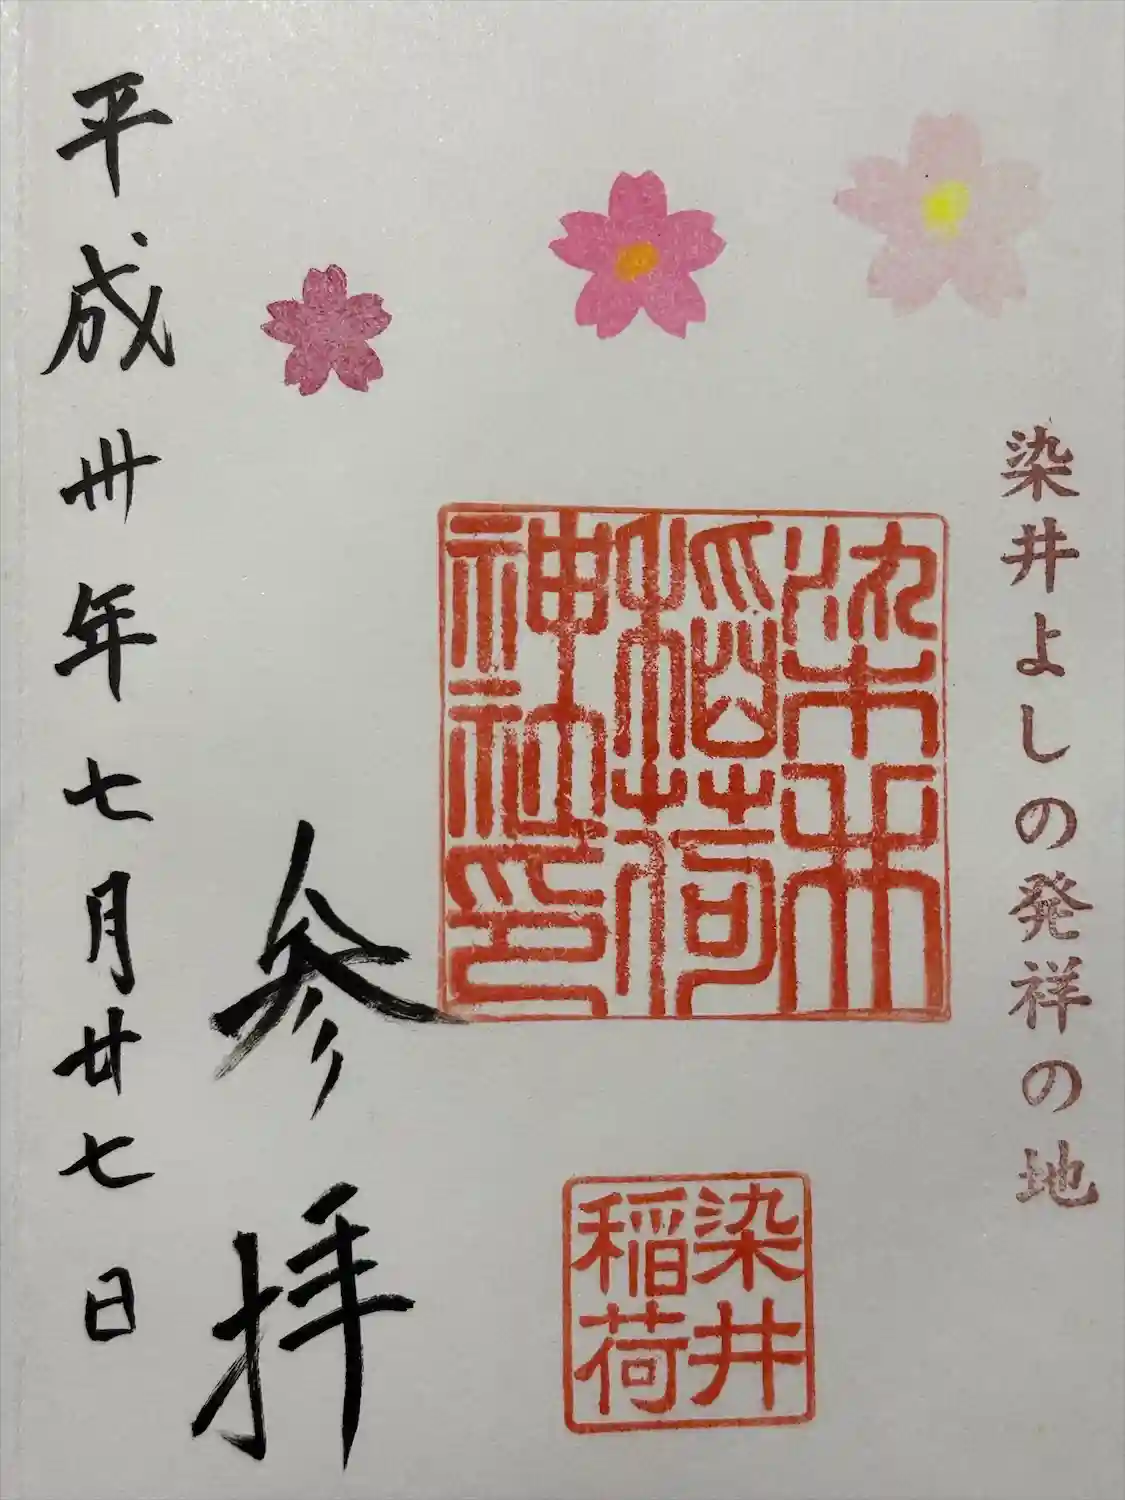 染井よしの発祥の地
染井
稲荷
神社印
染井
稲荷
参拝
平成卅年七月廿七日